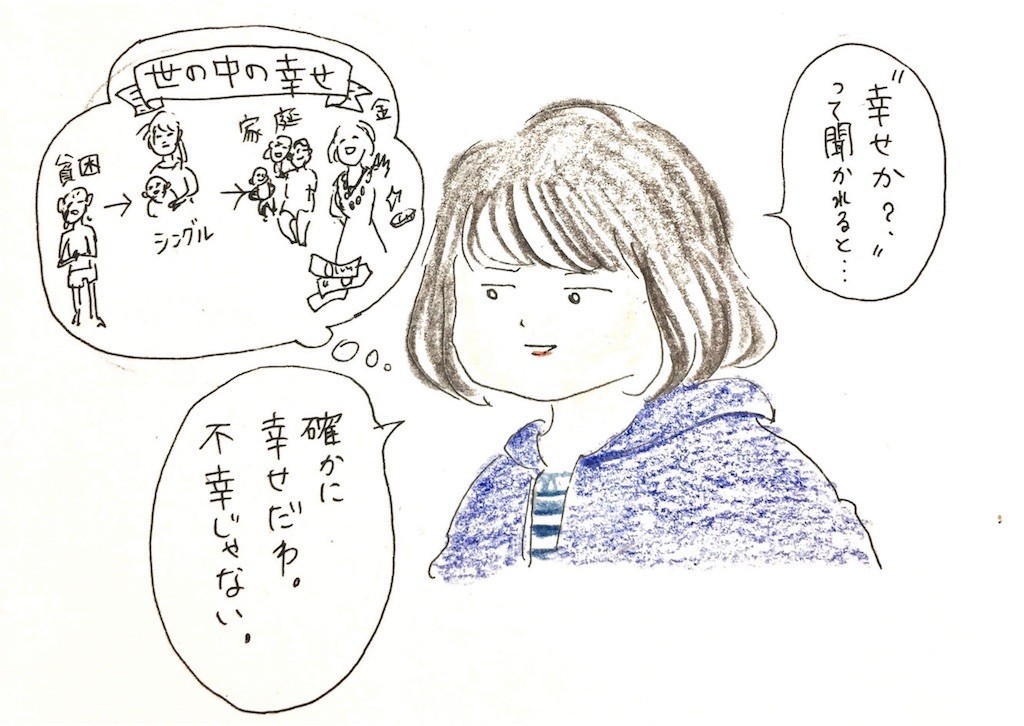 "幸せか?"
って聞かれると…
世の中の幸せ
貧困
シングル
家庭
金
確かに
幸せだわ。
不幸じゃない。